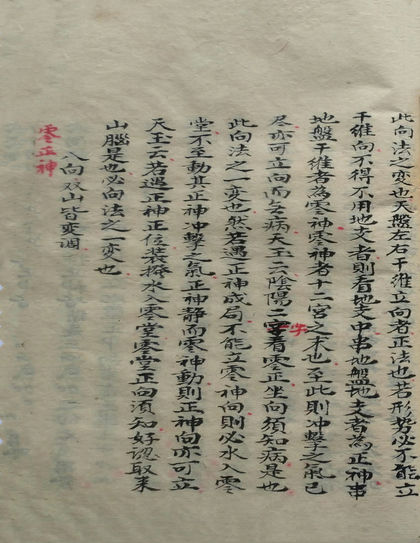 此向法之変也天盤左右干維立向者正法也若形势必不能立
干維向不得不用地支者則看地支中串地盤地支者為正神串
地盤干維者為零神零神者十二宮之末也至此則冲擊之氣已
尽亦可立向而無病天玉云陰陽二字看零正坐向須知病是也
此向法之一変也然若遇正神成局不能立零神向則必水入零
堂不至動其正神冲擊之氣正神静而零神動則正神向亦可立
天玉云若遇正神正位装撥水入零堂零堂正向須知好認取来
山腦是也必向法之一変也
八向双山皆变调
零正神